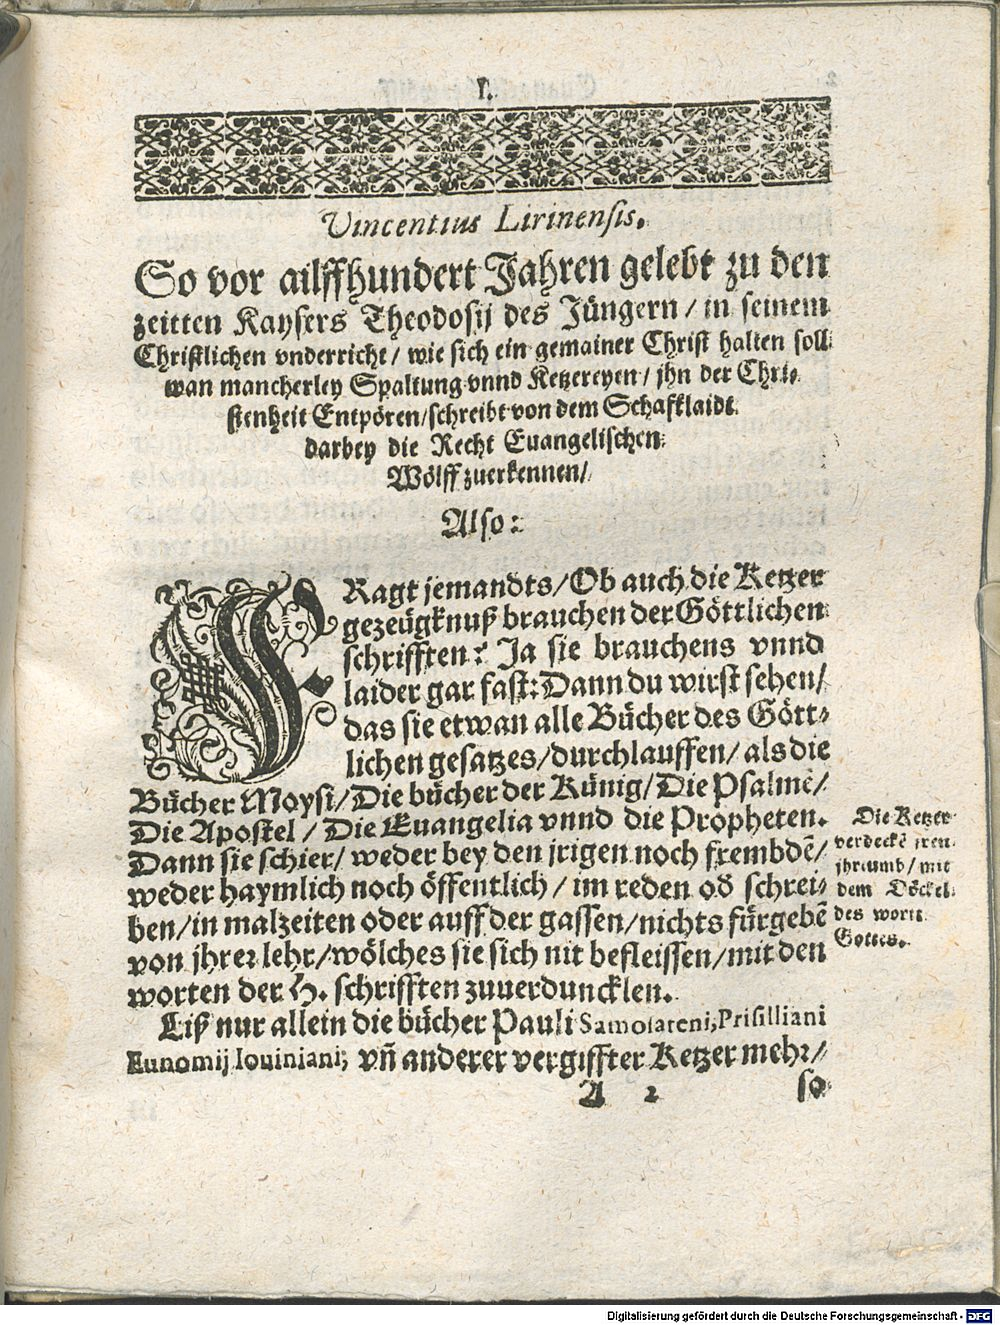 I.
Vincentius Lirinensis.
So vor ailffhundert Jahren gelebt zu den
zeitten Kaysers Theodosij des Jüngern / in seinem
Christlichen vnderricht / wie sich ein gemainer Christ halten soll
wan mancherley Spaltung vnnd Ketzereyen / jhn der Chri-
stenheit Entpören / schreibt von dem Schafklaidt
darbey die Recht Euangelischen
Wölff zuerkennen /
Also:
FRagt jemandts / Ob auch die Ketzer
gezeügknuß brauchen der Göttlichen
schrifften? Ja sie brauchens vnnd
laider gar fast: Dann du wirst sehen /
das sie etwan alle Bücher des Gött-
lichen gesatzes / durchlauffen / als die
Bücher Moysi / Die bücher der Künig / Die Psalmē /
Die Apostel / Die Euangelia vnnd die Propheten.
Dann sie schier / weder bey den jrigen noch frembdē /
weder haymlich noch öffentlich / im reden od̄ schrei-
ben / in malzeiten oder auff der gassen / nichts fürgebē
von jhrer lehr / wölches sie sich nit befleissen / mit den
worten der H. schrifften zuuerduncklen.
Liß nur allein die bücher Pauli Samosateni, Prisilliani
Eunomij Iouiniani, vn̄ anderer vergiffter Ketzer mehr /
A 2 so
Die Ketzer
verdeckē jren
jhrtumb / mit
dem Döckel
des worts
Gottes.
Digitalisierung gefördert durch die Deutsche Forschungsgemeinschaft - DFG